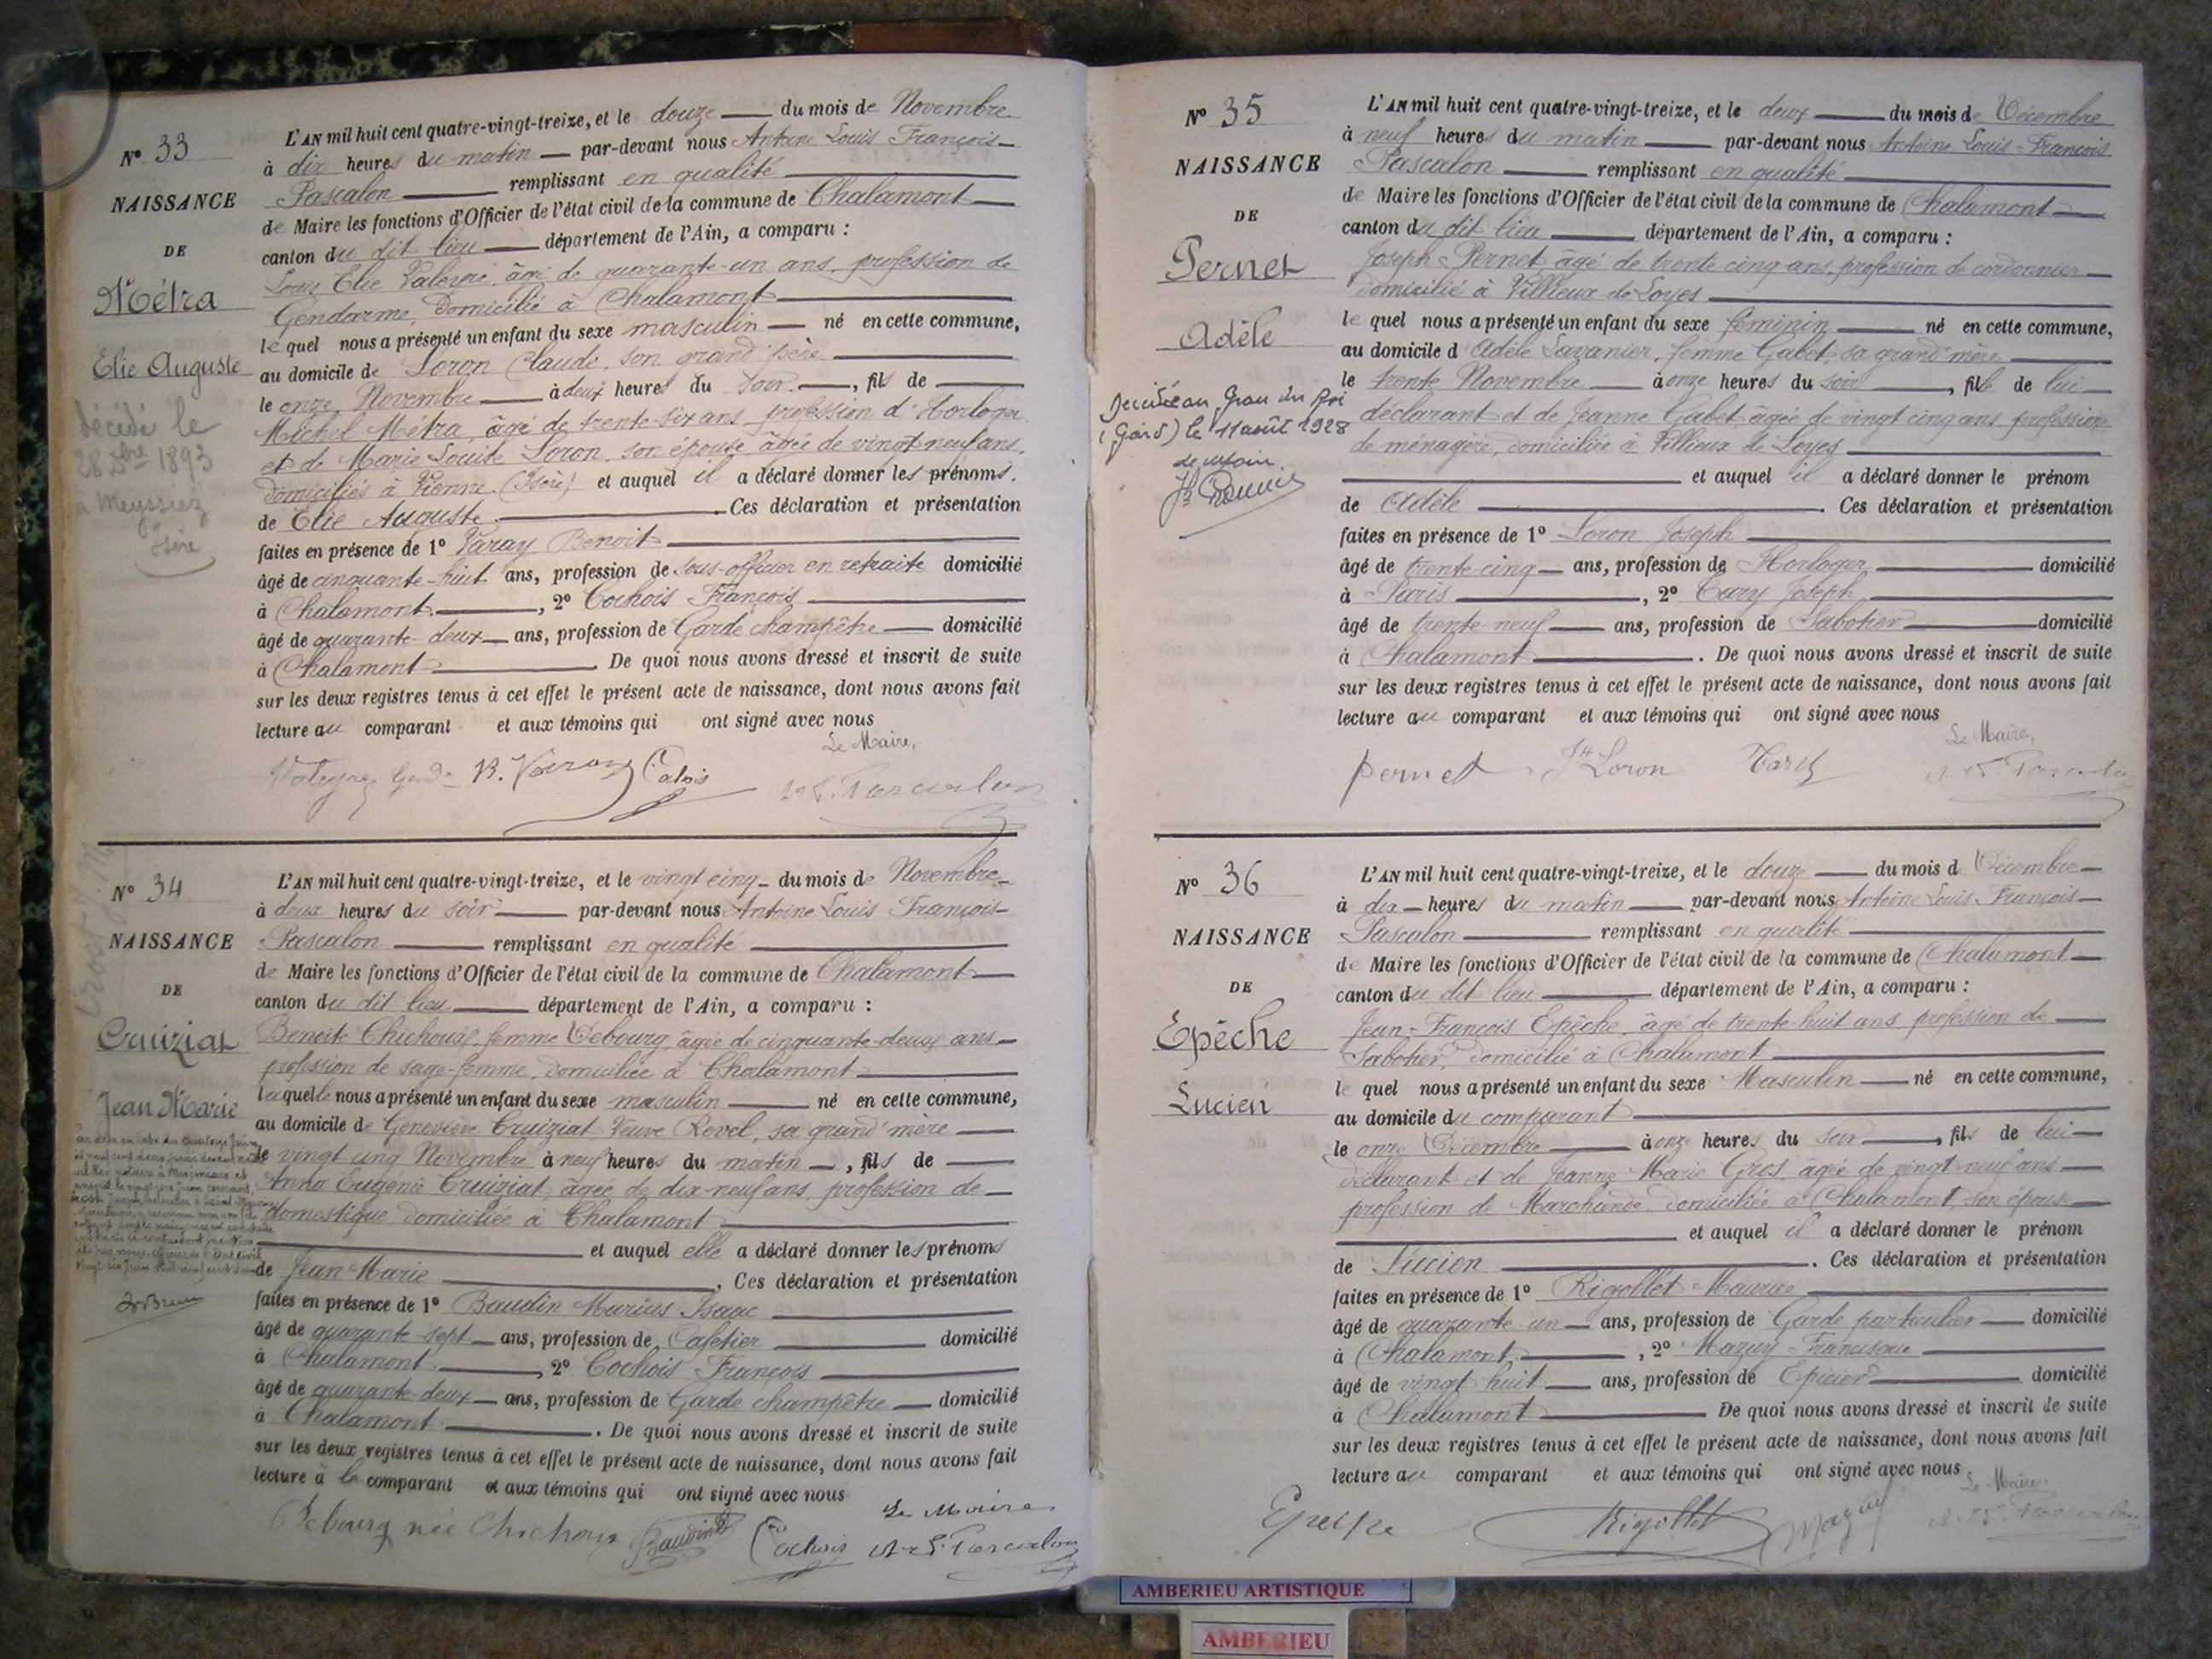 N° 33
NAISSANCE
DE
Métra
Elie Auguste
décédé le
28 Xbre 1893
a Meyssiez
Isère
L'AN mil huit cent quatre-vingt-treize, et le douze du mois de Novembre
à dix heures du matin par-devant nous Antoine Louis François
Pascalon remplissant en qualité
de Maire les fonctions d'Officier de l'état civil de la commune de Chalamont
canton du dit lieu département de l'Ain, a comparu :
Louis Elie âgé de quarante-un ans, profession de
Gendarme, Domicilié à Chalamont
lequel nous a présenté un enfant du sexe masculin né en cette commune,
au domicile de Loron Claude, son grand père
le onze Novembre à deux heures du soir, fils de
Michel Métra, âgé de trente-six ans, profession d'Horloger
et de Marie Louise Loron, son épouse, âgée de vingt-neuf ans,
domiciliés à Vienne (Isère) et auquel il a déclaré donner les prénoms
de Elie Auguste. Ces déclaration et présentation
faites en présence de 1° Varay Benoit
âgé de cinquante-huit ans, profession de sous-officier en retraite domicilié
à Chalamont, 2° Cochois François
âgé de quarante-deux ans, profession de Garde champêtre domicilié
à Chalamont. De quoi nous avons dressé et inscrit de suite
sur les deux registres tenus à cet effet le présent acte de naissance, dont nous avons fait
lecture au comparant et aux témoins qui ont signé avec nous
Le Maire,
N° 34
NAISSANCE
DE
Cruiziat
Jean Marie
L'AN mil huit cent quatre-vingt-treize, et le vingt cinq du mois de Novembre
à deux heures du soir par-devant nous Antoine Louis François
Pascalon remplissant en qualité
de Maire les fonctions d'Officier de l'état civil de la commune de Chalamont
canton du dit lieu département de l'Ain, a comparu :
Benoite Chichoux, femme Debourg, âgée de cinquante-deux ans
profession de sage-femme, domiciliée à Chalamont
laquelle nous a présenté un enfant du sexe masculin né en cette commune,
au domicile de Geneviève Cruiziat Veuve Revel, sa grand'mère
le vingt cinq Novembre à neuf heures du matin, fils de
Anna Eugénie Cruiziat, âgée de dix-neuf ans, profession de
domestique, domiciliée à Chalamont
et auquel elle a déclaré donner les prénoms
de Jean Marie. Ces déclaration et présentation
faites en présence de 1° Baudin Marius Isaac
âgé de quarante-sept ans, profession de Cafetier domicilié
à Chalamont, 2° Cochois François
âgé de quarante-deux ans, profession de Garde champêtre domicilié
à Chalamont. De quoi nous avons dressé et inscrit de suite
sur les deux registres tenus à cet effet le présent acte de naissance, dont nous avons fait
lecture à la comparant et aux témoins qui ont signé avec nous
Le Maire
Debourg née Chichoux Baudin Cochois A. L. F. Pascalon
N° 35
NAISSANCE
DE
Pernet
Adèle
Décédée au Grau du Roi
(Gard) le 11 août 1928
L'AN mil huit cent quatre-vingt-treize, et le deux du mois de Décembre
à neuf heures du matin par-devant nous Antoine Louis François
Pascalon remplissant en qualité
de Maire les fonctions d'Officier de l'état civil de la commune de Chalamont
canton du dit lieu département de l'Ain, a comparu :
Joseph Pernet âgé de trente cinq ans, profession de cordonnier
domicilié à Villieux de Loyes
lequel nous a présenté un enfant du sexe féminin né en cette commune,
au domicile d'Adèle Lazanier, femme Gabet, sa grand'mère
le trente Novembre à onze heures du soir, fille de lui
déclarant et de Jeanne Gabet âgée de vingt cinq ans, profession
de ménagère, domiciliée à Villieux de Loyes
et auquel il a déclaré donner le prénom
de Adèle. Ces déclaration et présentation
faites en présence de 1° Loron Joseph
âgé de trente-cinq ans, profession de Horloger domicilié
à Paris, 2° Cary Joseph
âgé de trente neuf ans, profession de Sabotier domicilié
à Chalamont. De quoi nous avons dressé et inscrit de suite
sur les deux registres tenus à cet effet le présent acte de naissance, dont nous avons fait
lecture au comparant et aux témoins qui ont signé avec nous
Le Maire,
pernet Jh Loron
N° 36
NAISSANCE
DE
Epêche
Lucien
L'AN mil huit cent quatre-vingt-treize, et le douze du mois d Décembre
à dix heures du matin par-devant nous Antoine Louis François
Pascalon remplissant en qualité
de Maire les fonctions d'Officier de l'état civil de la commune de Chalamont
canton du dit lieu département de l'Ain, a comparu :
Jean-François Epêche, âgé de trente-huit ans profession de
Sabotier, domicilié à Chalamont
le quel nous a présenté un enfant du sexe Masculin né en cette commune,
au domicile du comparant
le onze Décembre à onze heures du soir, fils de lui
déclarant et de Jeanne Marie Gros, âgée de vingt-neuf ans
profession de Marchande domiciliée à Chalamont, son épouse
et auquel il a déclaré donner le prénom
de Lucien. Ces déclaration et présentation
faites en présence de 1° Rigollet Maurice
âgé de quarante un ans, profession de Garde particulier domicilié
à Chalamont, 2° Mazuy Francisque
âgé de vingt huit ans, profession de Epicier domicilié
à Chalamont. De quoi nous avons dressé et inscrit de suite
sur les deux registres tenus à cet effet le présent acte de naissance, dont nous avons fait
lecture au comparant et aux témoins qui ont signé avec nous
Le Maire
Rigollet Mazuy
AMBERIEU ARTISTIQUE
AMBERIEU